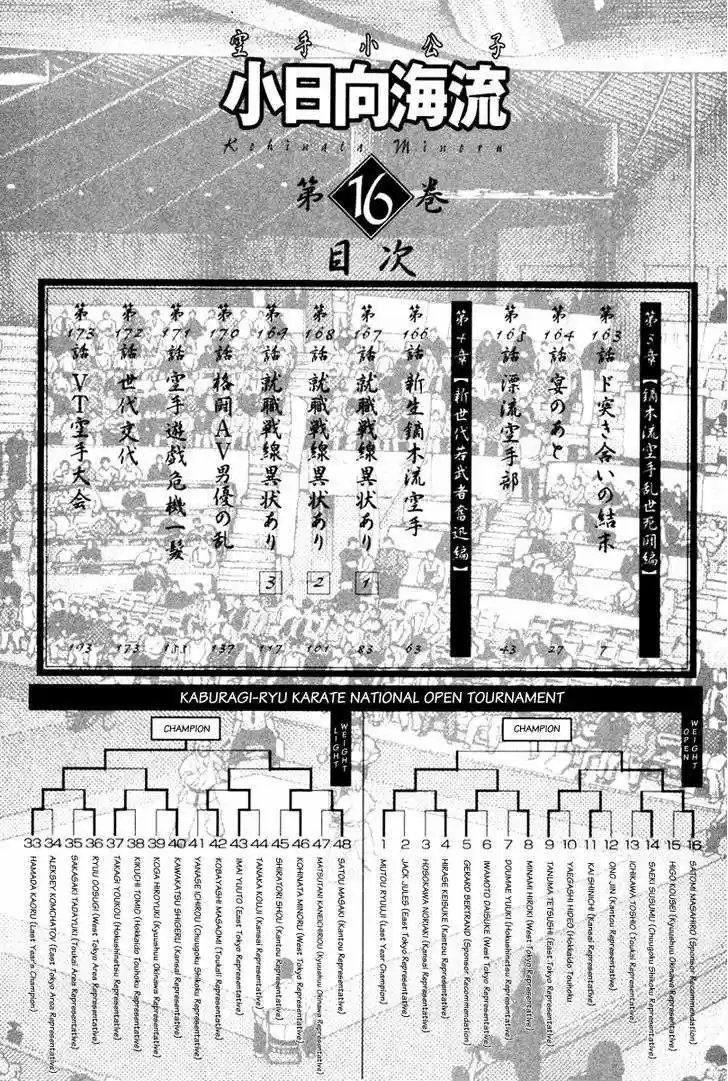 空手小公子
小日向海流
Kohinata Minoru
第16巻
目次
第5章【鏑木流空手乱世死闘編】
第163話 ド突き合いの結末 7
第164話 宴のあと 27
第165話 漂流空手部 43
第十章【新世代若武者奮迅編】
第166話 新生鏑木流空手 63
第167話 就職戦線異状あり 1 83
第168話 就職戦線異状あり 2 101
第169話 就職戦線異状あり 3 117
第170話 格闘AV男優の乱 137
第171話 空手遊戯危機一髪
第172話 世代交代 173
第173話 VT空手大会 193
KABURAGI-RYU KARATE NATIONAL OPEN TOURNAMENT
CHAMPION
LIGHT WEIGHT
33 HAMADA KAORU (Last Year's Champion)
34 ALEKSEY KOMCHATOV (East Tokyo Area Representative)
35 SAKASAKI TADAYUKI (Toukai Area Representative)
36 RYUU OOSUGI (West Tokyo Area Representative)
37 TAKAO YOUKOU (Hokushinetsu Representative)
38 KIKUCHI TOMIO (Hokkaido Touhoku Representative)
39 KOGA HIROYUKI (Kyuushuu Okinawa Representative)
40 KAWAKATSU SHIGERU (Kansai Representative)
41 YANASE ICHIROU (Chuugoku Shikoku Representative)
42 KOBAYASHI MASAOMI (Toukai Representative)
43 IMAI YUUTO (East Tokyo Representative)
44 TANAKA KOUJI (Kansai Representative)
45 SHIRATORI SHOU (Kantou Representative)
46 KOHINATA MINORU (West Tokyo Representative)
47 MATSUTANI KANEICHIROU (Kyuushuu Okinawa Representative)
48 SATOU MASAKI (Kantou Representative)
CHAMPION
OPEN WEIGHT
1 MUTOU RYUUJI (Last Year Champion)
2 JACK JULES (East Tokyo Representative)
3 HOSOKAWA NORIAKI (Kansai Representative)
4 HIRASE KEISUKE (Kantou Representative)
5 GERARD BERTRAND (Sponsor Recommendation)
6 IWAMOTO DAISUKE (West Tokyo Representative)
7 DOUMAE YUUKI (Hokushinetsu Representative)
8 MINAMI HIROKI (West Tokyo Representative)
9 TANUMA TETSUSHI (East Tokyo Representative)
10 YAEGASHI HIDEO (Hokkaido Touhoku
11 KAI SHINICHI (Kansai Representative)
12 ONO JIN (Kantou Representative)
13 ICHIKAWA TOSHIO (Toukai Representative)
14 SAEKI SUSUMU (Chuugoku Shikoku Representative)
15 HIGO KOUSEI (Kyuushuu Okinawa Representative)
16 SATOMI MASAHIRO (Sponsor Recommendation)